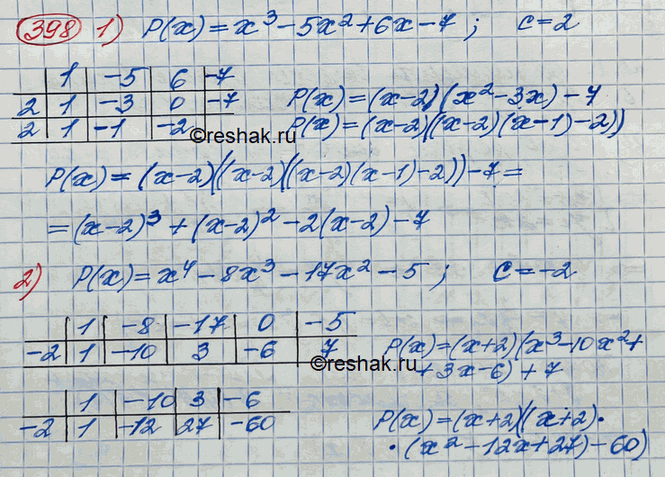 398 1) P(x) = x³ - 5x² + 6x - 7 ; c = 2
1 -5 6 -7
2 1 -3 0 -7
P(x) = (x-2)(x² - 3x) - 7
2 1 -1 -2
P(x) = (x-2)((x-2)(x-1)-2))
©reshak.ru
P(x) = (x-2)((x-2)((x-2)(x-1)-2))-7 =
= (x-2)³ + (x-2)² - 2(x-2) - 7
2) P(x) = x⁴ - 8x³ - 17x² - 5 ; c = -2
1 -8 -17 0 -5
-2 1 -10 3 -6 7
P(x) = (x+2)(x³ - 10x² +
+ 3x - 6) + 7
©reshak.ru
1 -10 3 -6
-2 1 -12 27 -60
P(x) = (x+2)((x+2)·
·(x² - 12x + 27) - 60)